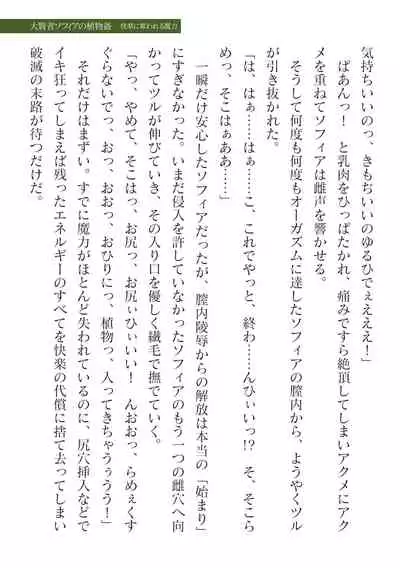 大賢者ソフィアの植物姦　快楽に奪われる魔力
気持ちいいのっ、きもちいいのゆるひてぇええええ！」
　ぱあんっ！　と乳肉をひっぱたかれ、痛みですら絶頂してしまいアクメにアク
メを重ねてソフィアは雌声を響かせる。
　そうして何度も何度もオーガズムに達したソフィアの膣内から、ようやくツル
が引き抜かれた。
「は、はぁ……はぁ……こ、これでやっと、終わ……んひぃいっ!?　そ、そこら
めっ、そこはぁああ……」
　一瞬だけ安心したソフィアだったが、膣内陵辱からの解放は本当の「始まり」
にすぎなかった。いまだ侵入を許していなかったソフィアのもう一つの雌穴へ向
かってツルが伸びていき、その入り口を優しく繊毛で撫でていく。
「やっ、やめて、そこはっ、お尻っ、お尻ぃいいい！　んおおっ、らめぇくす
ぐらないでっ、おっ、おおっ、おひりにっ、植物っ、入ってきちゃうぅうう！」
　それだけはまずい。すでに魔力がほとんど失われているのに、尻穴挿入などで
イキ狂ってしまえば残ったエネルギーのすべてを快楽の代償に捨て去ってしまい
破滅の末路が待つだけだ。